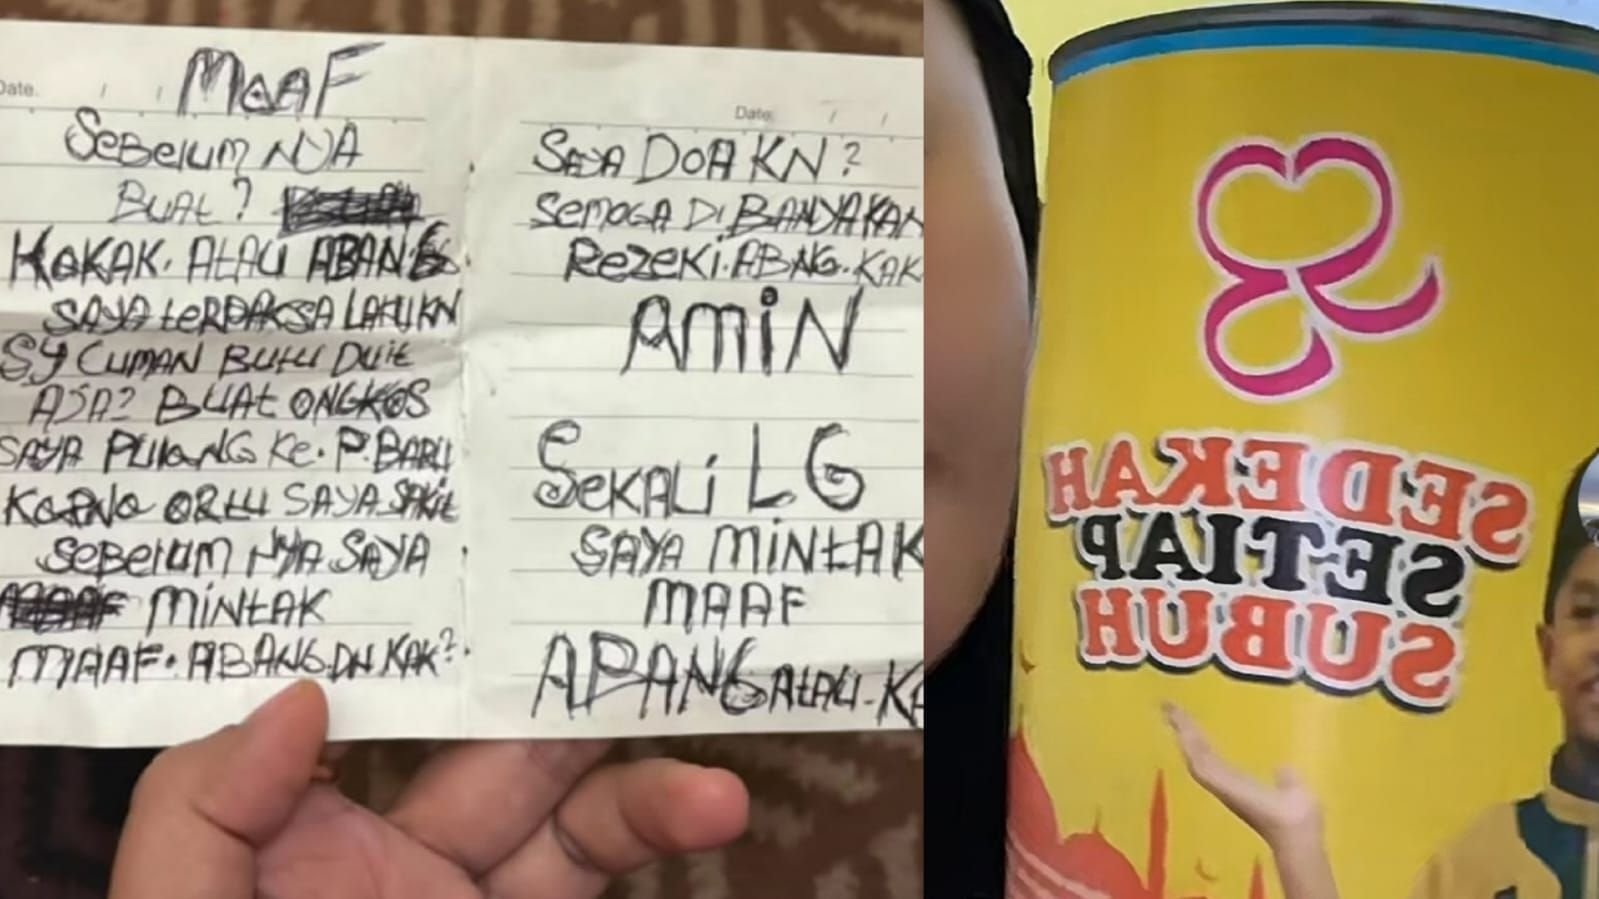 Date. / /
MAAF
SEBELUM NYA
BUAT?
KAKAK. ATAU ABANG.
SAYA tERPAKSA LAKUKN
SY CUMAN BUtU DUIt
AJA? BUAt ONGKOS
SAYA PULANG KE. P.BARU
KARNA ORtU SAYA SAKit
SEBELUM NYA SAYA
MAAF MINtAK
MAAF. ABANG.DN KAK?.
Date: / /
SAYA DOA KN?
SEMOGA DI BANYAKAN
REZEKI.ABNG.KAK
AMiN
SEKALi LG
SAYA MiNtAK
MAAF
APANG AtAU-KA
SEDEKAH
SETIAP
SUBUH